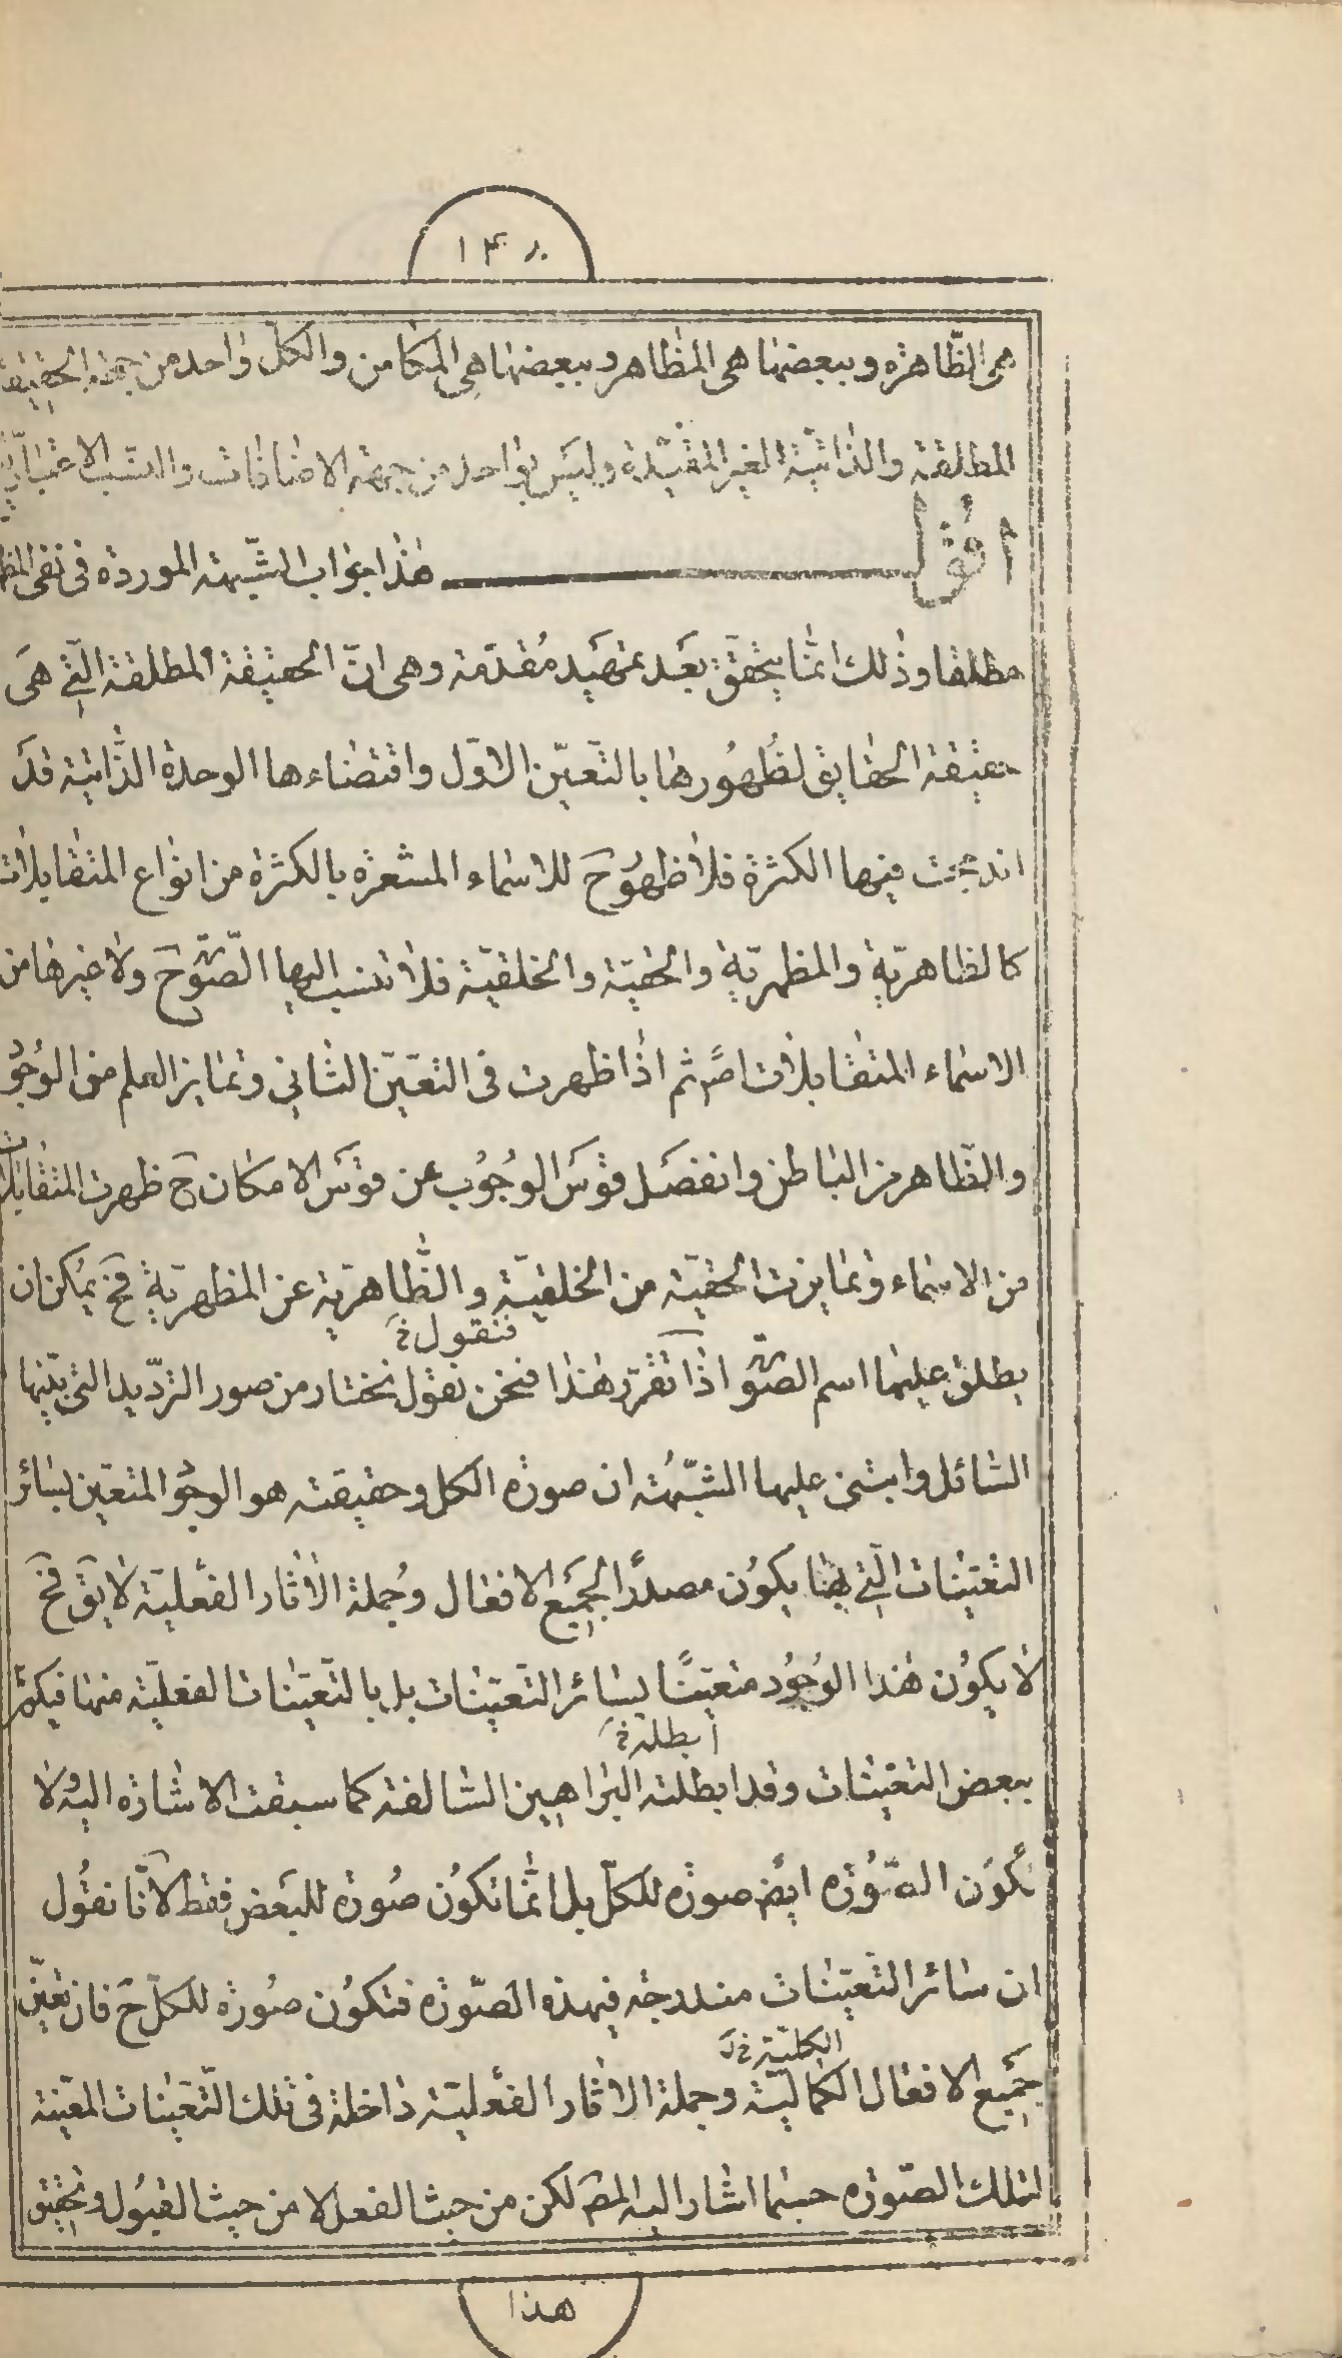 ١۴٨
هى الظّاهرة وببعضها هى المظاهر وببعضها هى المكامن والكلّ واحد من جهة الحقيقة
المطلقة والذاتيّة الغير المقيّدة وليس بواحد من جهة الاضافات والنسب الاعتباريّة
اقول هذا جواب الشّبهة الموردة فى نفى المظ
مطلقا وذلك انّما يتحقق بعد تمهيد مُقدّمة وهى انّ الحقيقة المطلقة الّتى هى
حقيقة الحقايق لظُهُورها بالتّعيّن الاوّل واقتضاءها الوحدة الذّاتية قد
اندمجت فيها الكثرة فلا ظهُوحَ للاسماء المشعرة بالكثرة من انواع المتقابلات
كالظاهريّة والمظهريّة والحقيّة والخلقيّة فلا تنسب اليها الصّوَح ولا غيرها من
الاسماء المتقابلات اصًم ثم اذا ظهرت فى التعيّن الثانى وتمايز العلم من الوُجُوُ
والظّاهر من الباطن وانفصَل قوسَ الوجُوب عن قوسَ الامكان ح ظهرت المتقابلات
من الاسماء وتمايزت الحقيّة من الخلقيّة والظّاهريّة عن المظهريّة فح يمكن ان
فنقول خ
يطلق عليها اسم الصّو اذا تقرّر هذا فنحن نقول نختار من صور التردّيد التى بيّنها
السّائل وابتنى عليها الشبّهة ان صورة الكل وحقيقته هو الوجو المتعيّن بسائر
التعيّنات الّتى بها يكون مصدرًا لجميع الافعال وجُملة الاثار الفعليّة لا يقَ فح
لا يكون هذا الوُجُود متعيّنًا بسائر التعيّنات بل بالتّعيّنات الفعليّة منها فيكم
ابطلة خ
ببعض التعيّنات وقد ابطلته البراهين السّالفة كما سبقت الاشارة اليه ولا
تكون الصّورة ايضم صورة للكلّ بل انّما تكون صُورة للبعض فقط لانّا نقُول
ان سائر التّعيّنات مندرجة فيهذه الصّورة فتكون صُورة للكلّ ح فان تعيّن
الكليّة خ
جميع الافعال الكماليّة وجملة الاثار الفعليّة داخلة فى تلك التّعيّنات المعيّنة
لتلك الصّورة حسبما اشار اليه المصَ لكن من حيث الفعل لا من حيث القبول وتحقيق
هذا